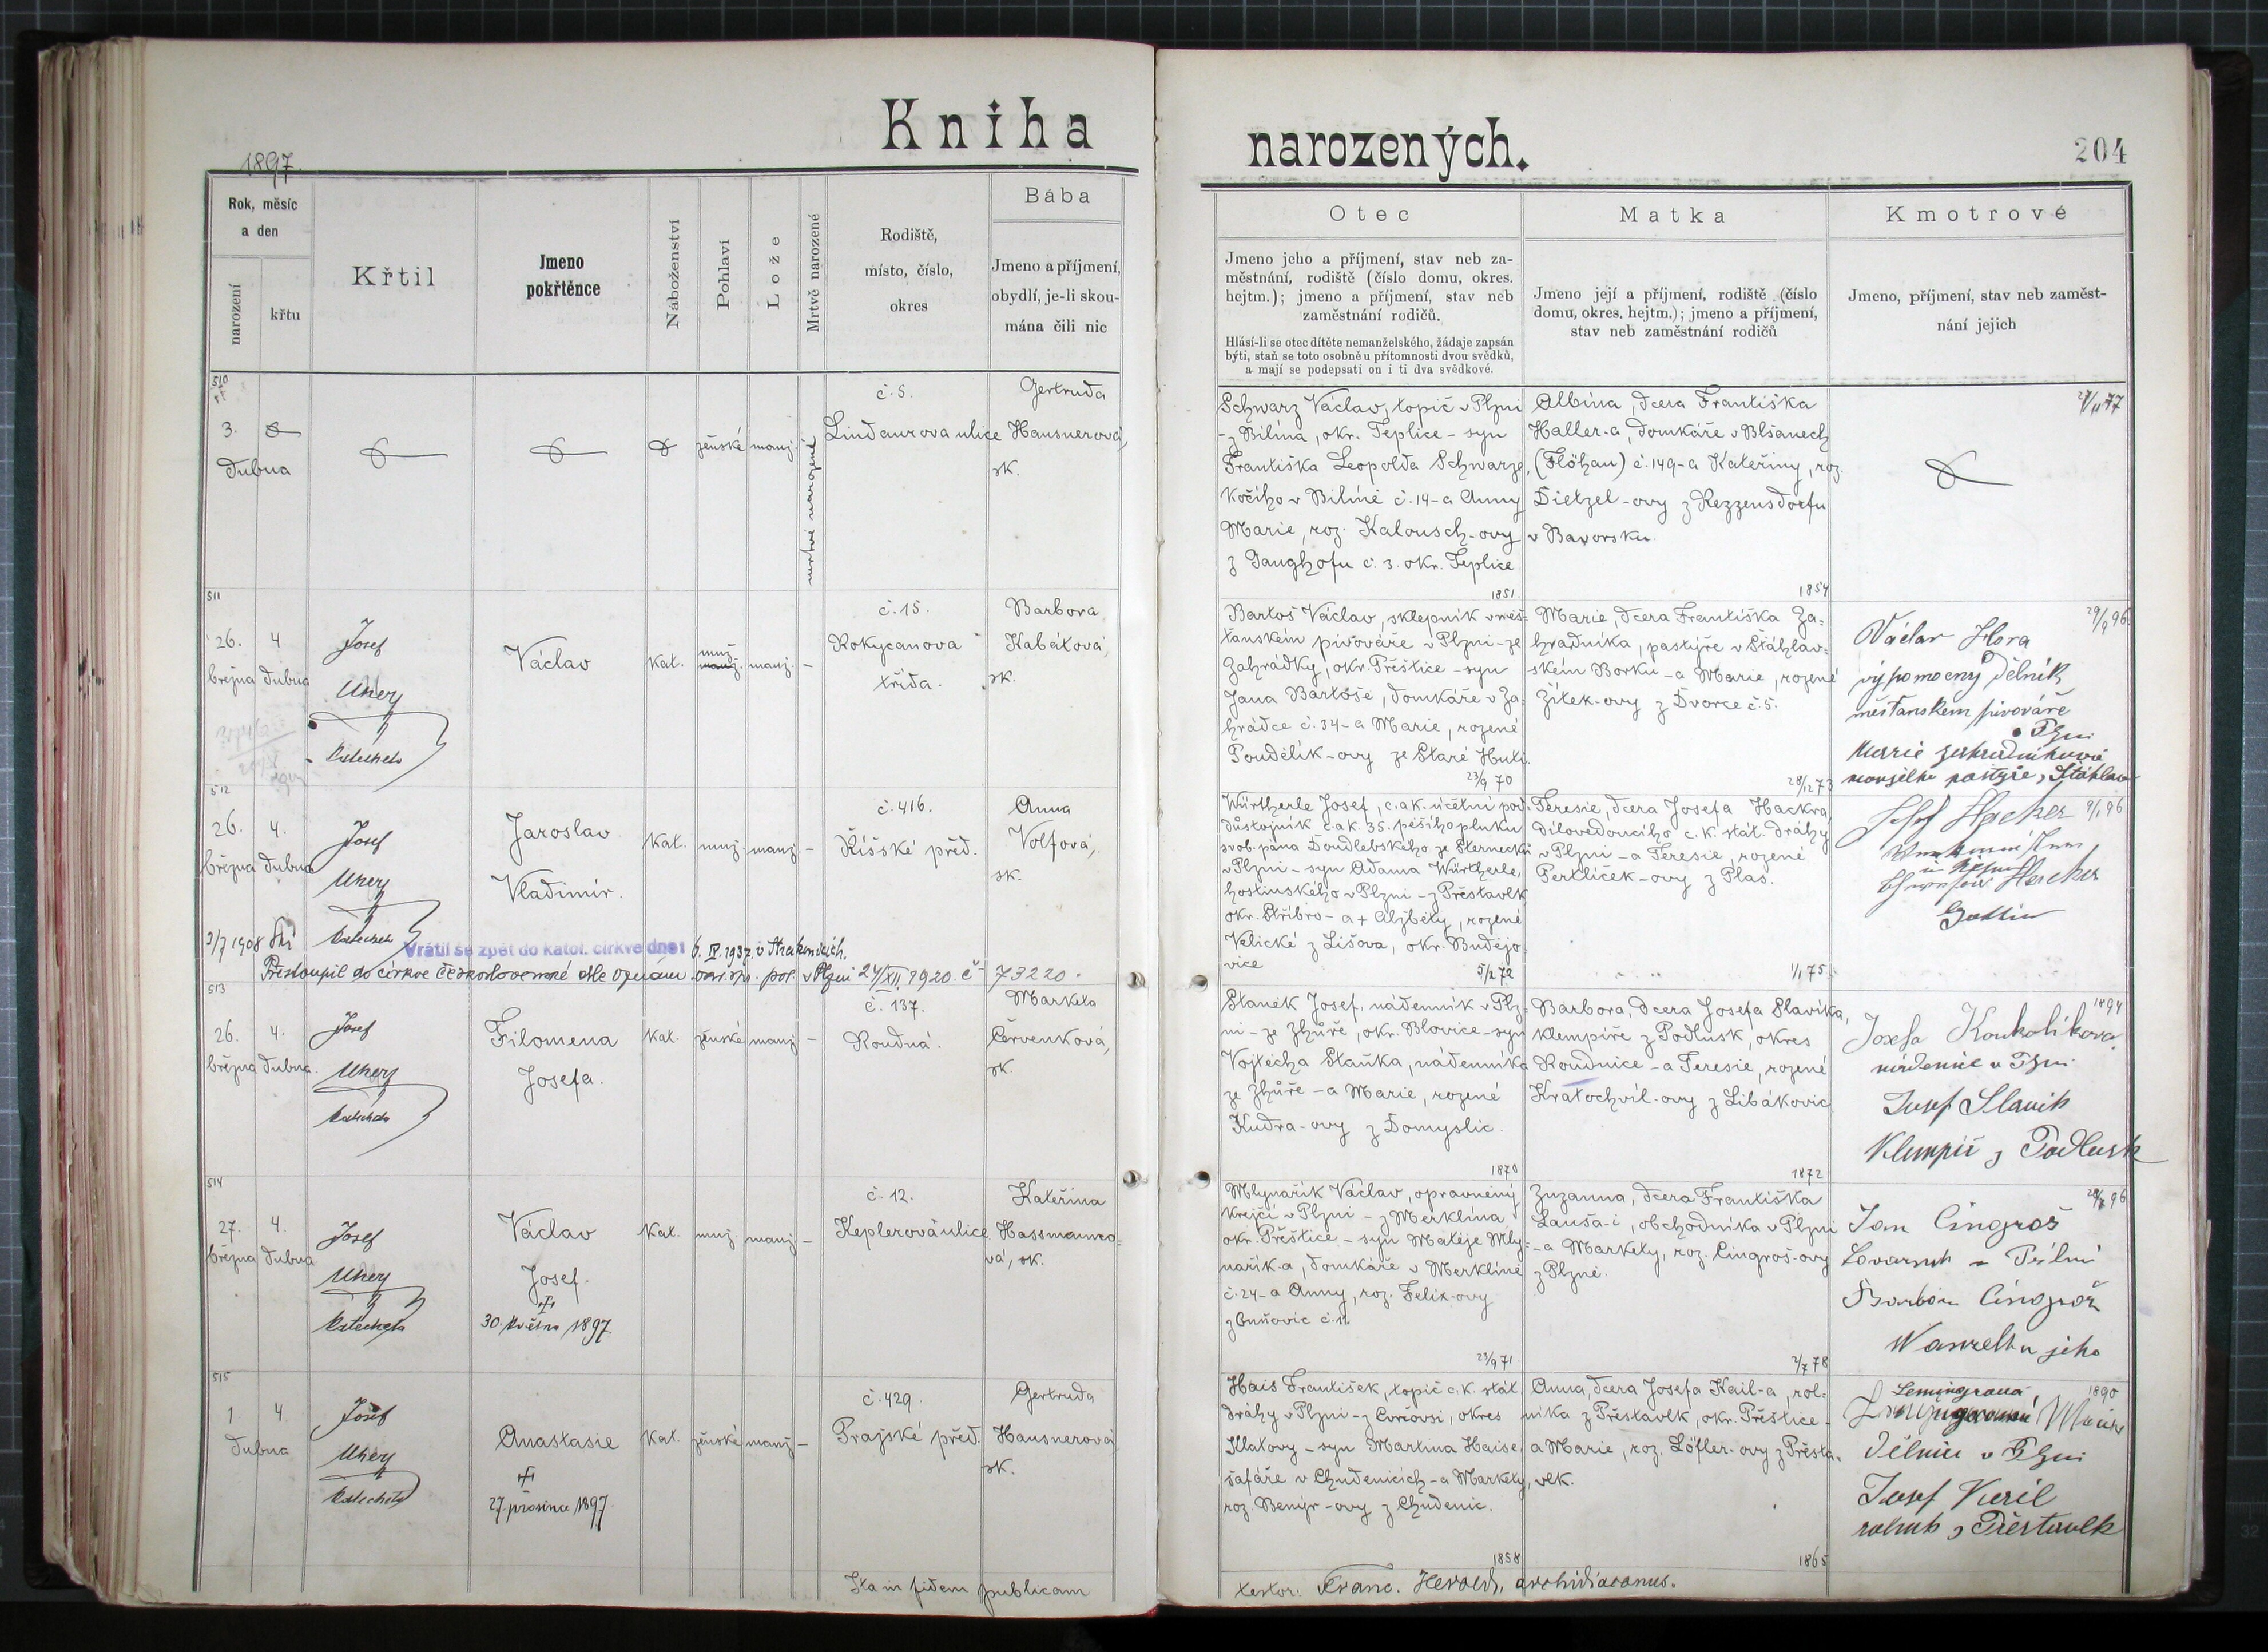 Kniha
narozených.
204
1897.
Rok, měsíc
a den
narození
křtu
Křtil
Jmeno
pokřtěnce
Náboženství
Pohlaví
Lože
Mrtvě narozené
Rodiště,
místo, číslo,
okres
Bába
Jmeno a příjmení,
obydlí, je-li skou-
mána čili nic
Otec
Jmeno jeho a příjmení, stav neb za-
městnání, rodiště (číslo domu, okres.
hejtm.); jmeno a příjmení, stav neb
zaměstnání rodičů.
Hlásí-li se otec dítěte nemanželského, žádaje zapsán
býti, staň se toto osobně u přítomnosti dvou svědků,
a mají se podepsati on i ti dva svědkové.
Matka
Jmeno její a příjmení, rodiště (číslo
domu, okres. hejtm.); jmeno a příjmení,
stav neb zaměstnání rodičů
Kmotrové
Jmeno, příjmení, stav neb zaměst-
nání jejich
510
3.
dubna
ženské
manž.
mrtvě narozené
č. 5.
Lindaurova ulice
Gertruda
Hausnerová,
sk.
Schwarz Václav, topič v Plzni
- z Bílina, okr. Teplice - syn
Františka Leopolda Schwarze,
kočího v Bílině č. 14 - a Anny
Marie, roz. Kalousch-ovy
z Ganghofu č. 3. okr. Teplice
1851.
Albina, dcera Františka
Haller-a, domkáře v Blšanech
(Flöhau) č. 149 - a Kateřiny, roz.
Dietzel-ovy z Rezzensdorfu
v Bavorsku.
1854
511
26.
března
4
dubna
Josef
Uher
katecheta
Václav
kat.
muž.
manž.
manž.
-
č. 15.
Rokycanova
třída.
Barbora
Kabátová,
sk.
Bartoš Václav, sklepník v měš-
ťanském pivováře v Plzni - ze
Zahrádky, okr. Přeštice - syn
Jana Bartoše, domkáře v Za-
hrádce č. 34 - a Marie, rozené
Poudělík-ovy ze Staré Huti.
23/9 70
Marie, dcera Františka Za-
hradníka, pastýře v Šťáhlav-
ském Borku - a Marie, rozené
Žítek-ovy z Dvorce č. 5.
28/12 73
29/9 96
Václav Hora
výpomocný dělník
měšťanském pivováře
Plzni
Marie Zahradníková
manželka pastýře, Šťáhlav
512
26.
března
4.
dubna
Josef
Uher
katecheta
Jaroslav
Vladimír.
kat.
muž.
manž.
-
č. 416.
Říšské předm.
Anna
Volfová,
sk.
Würtherle Josef, c. a k. účetní pod-
důstojník c. a k. 35. pěšího pluku
svob. pána Doudlebského ze Sternecků
v Plzni - syn Adama Würtherle,
hostinského v Plzni - z Přestavlk
okr. Stříbro - a + Alžběty, rozené
Velické z Lišova, okr. Budějo-
vice
5/2 72
Teresie, dcera Josefa Hackra
dílovedoucího c. k. stát. dráhy
v Plzni - a Teresie, rozené
Pertlíček-ovy z Plas.
1/1 75.
9/1 96
Josef Hacker
Hacker
Gattin
2/7 1908
Vrátil se zpět do katol. církve dne: 6. IV. 1937. v Strakonicích.
Přestoupil do církve československé dle oznámení okr. spr. pol. v Plzni 24/XII. 1920. č. 73220.
513
26.
března
4.
dubna.
Josef
Uher
katecheta
Filomena
Josefa.
kat.
ženské
manž.
-
č. 137.
Roudná.
Marketa
Červenková,
sk.
Staněk Josef, nádenník v Plz-
ni - ze Zhůře, okr. Blovice - syn
Vojtěcha Staňka, nádenníka
ze Zhůře - a Marie, rozené
Kudra-ovy z Domyslic.
1870
Barbora, dcera Josefa Slavíka,
klempíře z Podlusk, okres
Roudnice - a Teresie, rozené
Kratochvíl-ovy z Libákovic
1872
1894
Josefa Koukolíkova
nádenice v Plzni
Josef Slavik
Klempíř z Podlusk
514
27.
března
4.
dubna
Josef
Uher
katecheta
Václav
Josef.
†
30. května 1897.
kat.
muž.
manž.
-
č. 12.
Keplerova ulice
Kateřina
Hassmanno-
vá, sk.
Mlynařík Václav, oprávněný
krejčí v Plzni - z Merklína
okr. Přeštice - syn Matěje Mly-
nařík-a, domkáře v Merklíně
č. 24 - a Anny, roz. Felix-ovy
z Buňovic č. 11.
23/9 71.
Zuzanna, dcera Františka
Lauša-i, obchodníka v Plzni
- a Markety, roz. Cingroš-ovy
z Plzně.
2/7 78
96
Jan Cingroš
Barbora Cingroš
Manzelka jeho
515
1
4.
dubna
Josef
Uher
katecheta
Anastasie
†
27. prosince 1897.
kat.
ženské
manž.
-
č. 429.
Pražské předm.
Gertruda
Hausnerová
sk.
Hais František, topič c. k. stát.
dráhy v Plzni - z Cvrčovsi, okres
Klatovy - syn Martina Haise,
šafáře v Chudenicích - a Markety,
roz. Benýr-ovy z Chudenic.
1858
Anna, dcera Josefa Kail-a, rol-
níka z Přestavlk, okr. Přeštice -
a Marie, roz. Löfler-ovy z Přesta-
vlk.
1865
1890
Lemingrová
Marie
dělnice v Plzni
Josef
rolník z Přestavlk
Ita in fidem publicam
testor: Franc. Herold, archidiaconus.